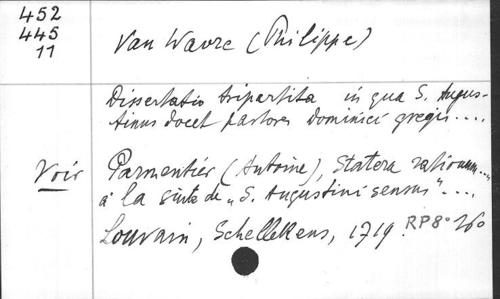 452
445
11
Van Wavre (Philippe)
Dissertatio tripartita in qua S. Augus-
tinus docet pastores Dominici gregis....
Voir Parmentier (Antoine), Statera rationum....
à la suite de „S. Augustini sensus"....
Louvain, Schellekens, 1719. RP8° 260